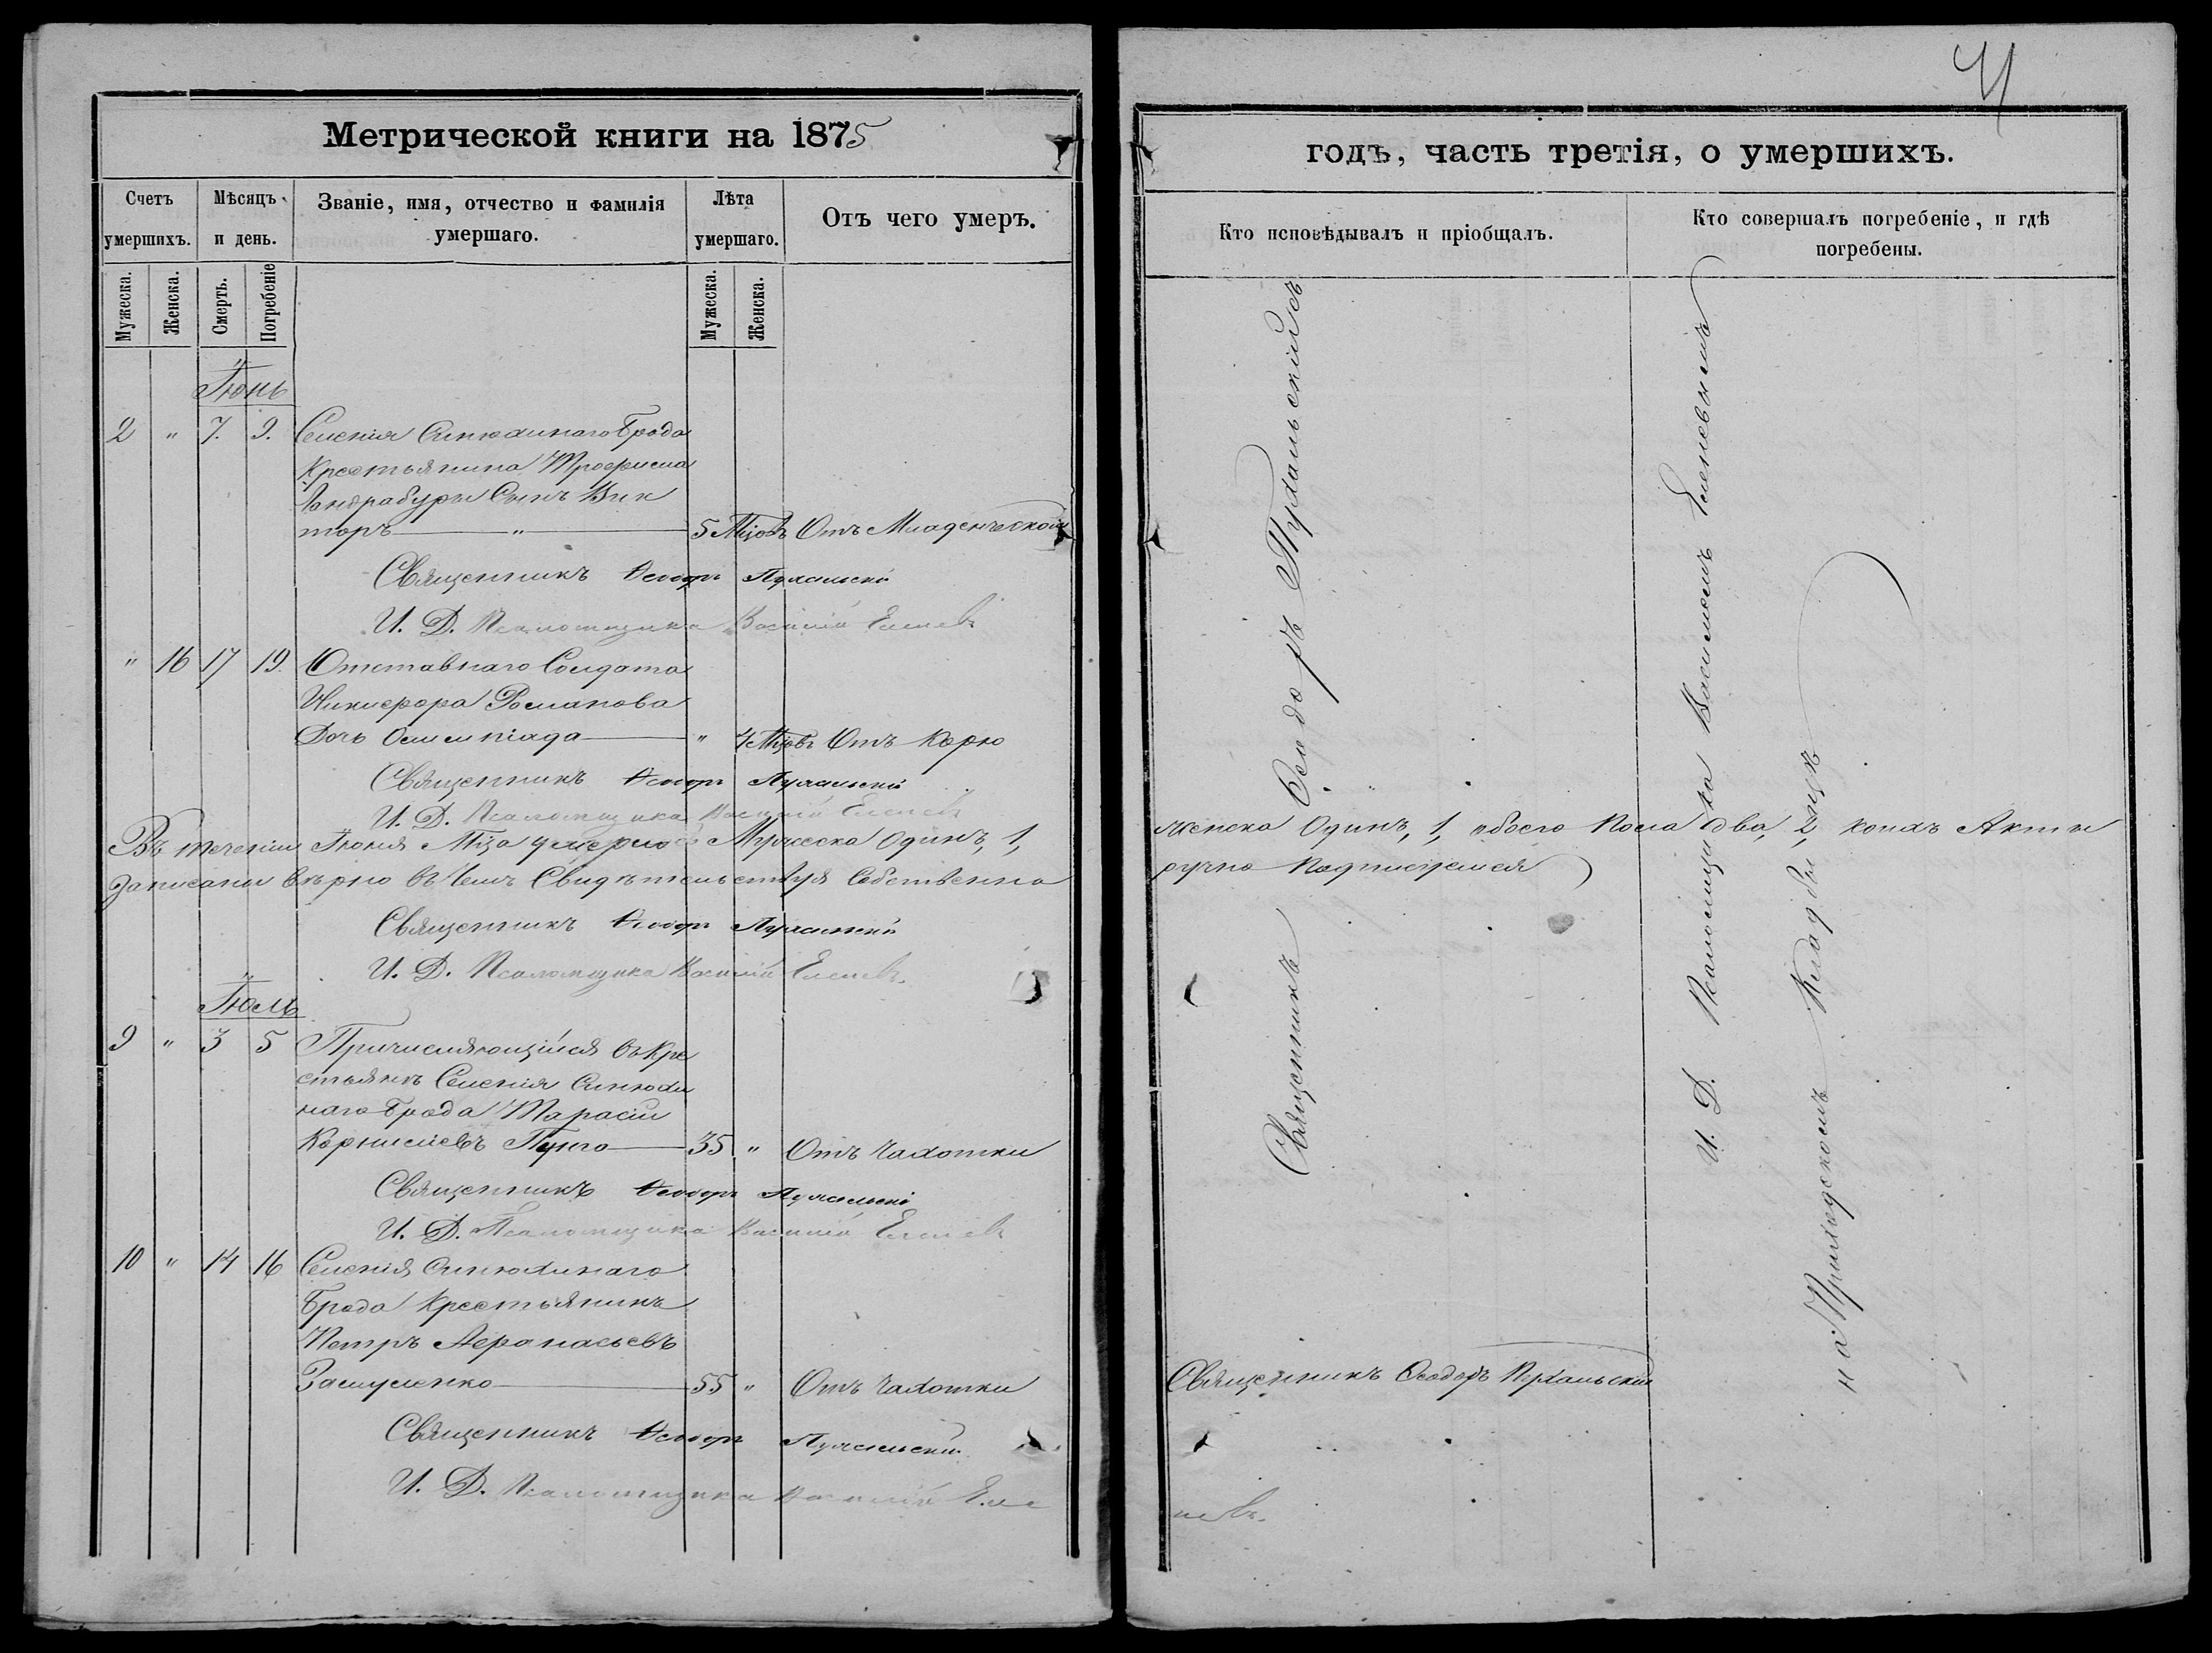 Метрической книги на 1875
Счетъ умершихъ.
Мѣсяцъ и день.
Званіе, имя, отчество и фамилія умершаго.
Лѣта умершаго.
Отъ чего умеръ.
Мужеска.
Женска.
Смерть.
Погребеніе
Мужеска.
Женска.
Іюнь
2 " 7. 9. Селенія Синюхинаго Брода
Крестьянина Трофима
Сынъ Вик
торъ — " — 5 Мцовъ Отъ Младенческой
Священникъ Феодоръ Пухальскій
И. Д. Псаломщика Василій Еленевъ
" 16 17 19. Отставнаго Солдата
Никифора Романова
Дочь Олимпіада — " 4 Мцовъ Отъ Корю
Священникъ Феодоръ Пухальскій
И. Д. Псаломщика Василій Еленевъ
Въ теченіи Іюня Мца умерло Мужеска Одинъ, 1,
записаны вѣрно въ чемъ Свидѣтельствуя Собственно
Священникъ Феодоръ Пухальскій
И. Д. Псаломщика Василій Еленевъ.
Іюль
9 " 3 5 Причисляющійся въ Кре
стьяне Селенія Синюхи
наго Брода Тарасій
Корниліевъ — 35 " Отъ Чахотки
Священникъ Феодоръ Пухальскій
И. Д. Псаломщика Василій Еленевъ
10 " 14 16 Селенія Синюхинаго
Брода Крестьянинъ
Петръ Афанасьевъ
— 55 " Отъ Чахотки
Священникъ Феодоръ Пухальскій
И. Д. Псаломщика Василій Еле
годъ, часть третія, о умершихъ.
Кто исповѣдывалъ и пріобщалъ.
Кто совершалъ погребеніе, и гдѣ погребены.
женска Одинъ, 1, обоего Пола два, 2, коихъ Акты
ручно Подписуемся
Священникъ Феодоръ Пухальскій
невъ.
Священникъ Феодоръ Пухальскій съ
И. Д. Псаломщика Василіемъ Еленевымъ
на Приходскомъ Кладбищѣ